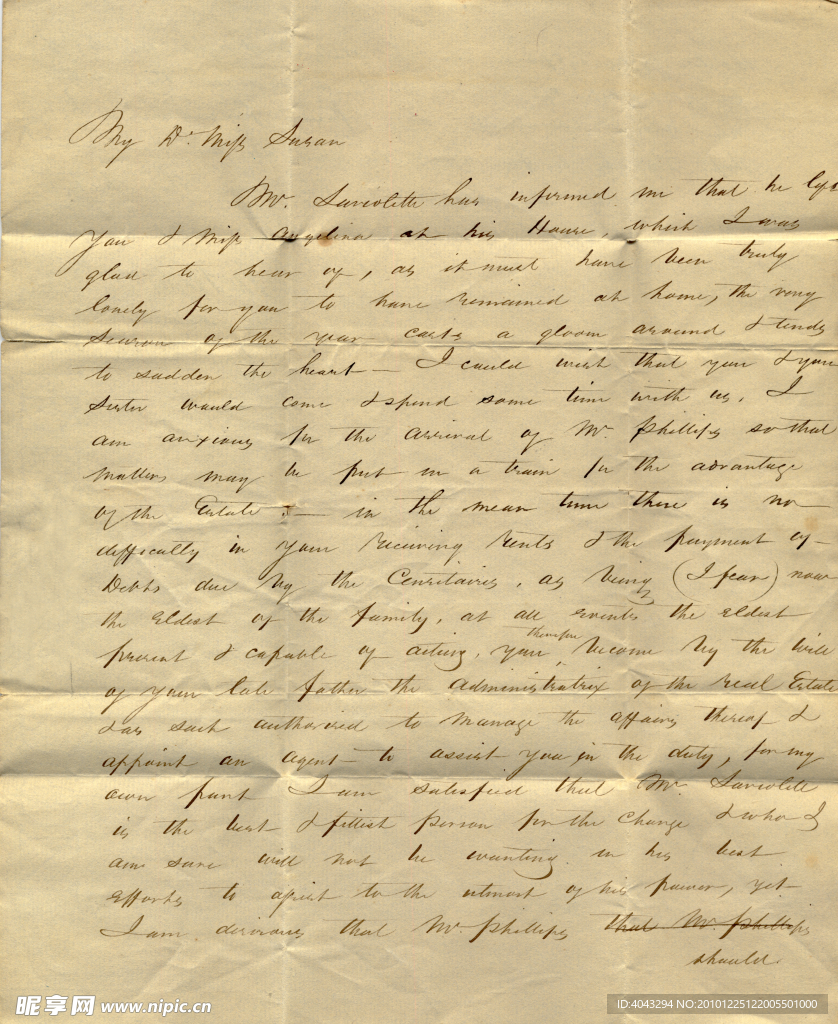 My Dr. Miss Susan
Mr. Laviolette has informed me that he left
You & Miss Angelina at his House, which I was
glad to hear of, as it must have been truly
lonely for you to have remained at home, the very
Season of the year casts a gloom around & tends
to sadden the heart — I could wish that you & your
Sister would come & spend some time with us. I
am anxious for the arrival of Mr. Phillips so that
matters may be put in a train for the advantage
of the Estate — in the mean time there is no
difficulty in your receiving Rents & the payment of
Debts due by the Censitaires, as being (I fear) now
the Eldest of the family, at all events the Eldest
present & capable of acting, you therefore become by the Will
of your late father the Administratrix of the real Estate
& as such authorized to manage the affairs thereof &
appoint an agent to assist you in the duty, for my
own part I am satisfied that Mr. Laviolette
is the best & fittest person for the Charge & who I
am sure will not be wanting in his best
efforts to assist to the utmost of his power, yet
I am desirous that Mr. Phillips that Mr. Phillips
should
昵享网 www.nipic.cn
ID:4043294 NO:20101225122005501000